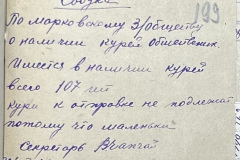 Сводка
199
По марковскому З/обществу
о наличии курей Обществен.
Имеется в наличии курей
всего 107 шт
куры к отправке не подлежат
потому что маленькие
Секретарь